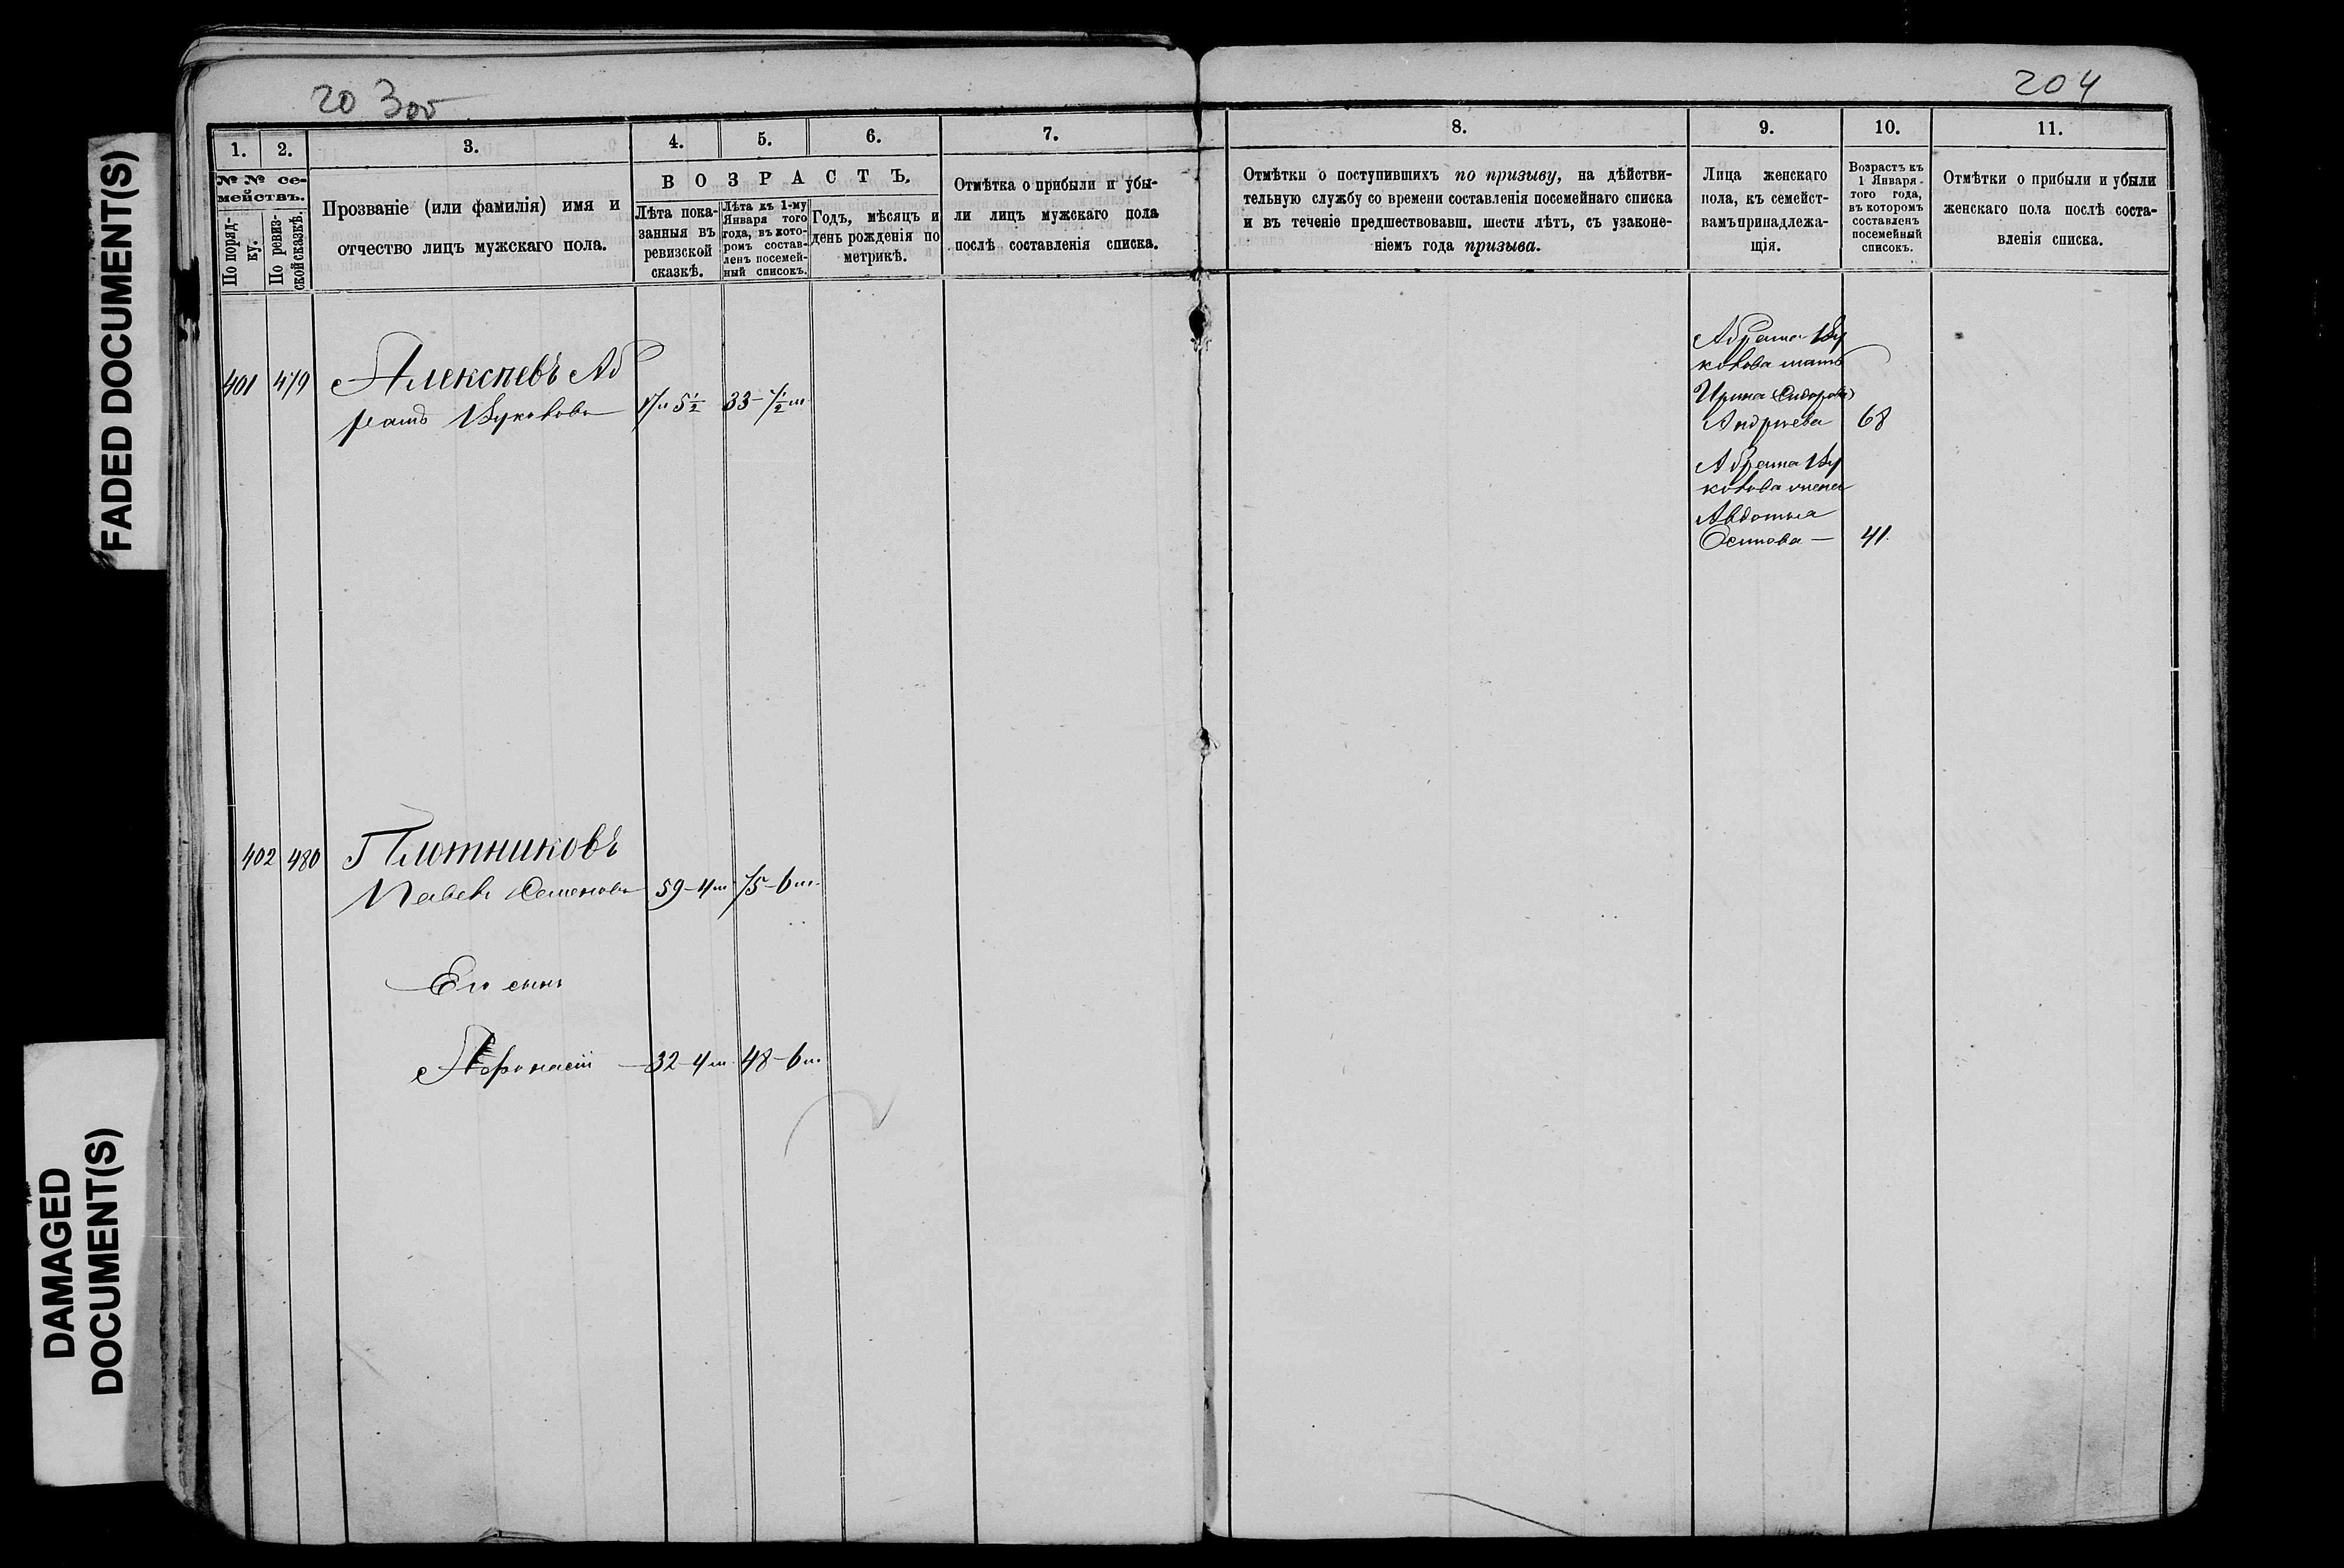 FADED DOCUMENT(S)
DAMAGED
DOCUMENT(S)
20 Зоб
204
1. 2. 3. 4. 5. 6. 7.
№ № се-
мействъ.
По поряд-
ку.
По ревиз-
ской сказкѣ.
Прозваніе (или фамилія) имя и
отчество лицъ мужскаго пола.
ВОЗРАСТЪ.
Лѣта пока-
занныя въ
ревизской
сказкѣ.
Лѣта къ 1-му
Января того
года, въ кото-
ромъ состав-
ленъ посемей-
ный списокъ.
Годъ, мѣсяцъ и
день рожденія по
метрикѣ.
Отмѣтка о прибыли и убы-
ли лицъ мужскаго пола
послѣ составленія списка.
8. 9. 10. 11.
Отмѣтки о поступившихъ по призыву, на дѣйстви-
тельную службу со времени составленія посемейнаго списка
и въ теченіе предшествовавш. шести лѣтъ, съ узаконе-
ніемъ года призыва.
Лица женскаго
пола, къ семейст-
вамъ принадлежа-
щія.
Возрастъ къ
1 Января
того года,
въ которомъ
составленъ
посемейный
списокъ.
Отмѣтки о прибыли и убыли
женскаго пола послѣ соста-
вленія списка.
401 479 Алексѣевъ Аб
рамъ 33-½ м
Абрама
кова мать
Ирина Сидорова
Андреева 68
Абрама
кова жена
Авдотья
Осипова — 41.
402 480 Плотниковъ
Павелъ Семеновъ 59-4 м 75-6 м.
Его сынъ
Афонасій — 32-4 м. 48-6 м.